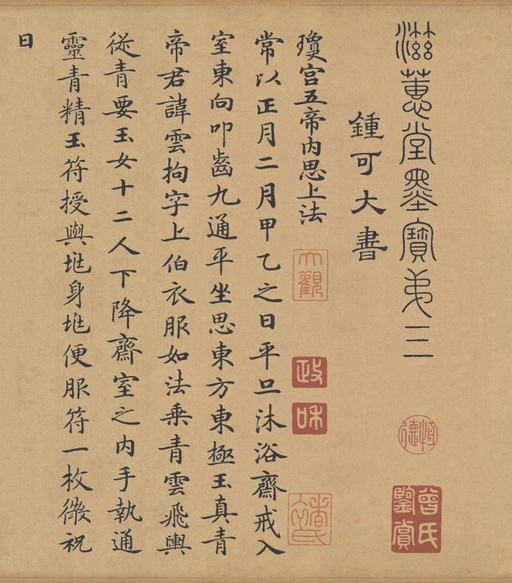 滋蕙堂墨寶弟三
恒德
曾氏鑒賞
鍾可大書
瓊宮五帝內思上法
大觀
政和
常以正月二月甲乙之日平旦沐浴齋戒入
室東向叩齒九通平坐思東方東極玉真青
帝君諱雲拘字上伯衣服如法乘青雲飛輿
從青要玉女十二人下降齋室之內手執通
靈青精玉符授與兆身兆便服符一枚微祝
曰